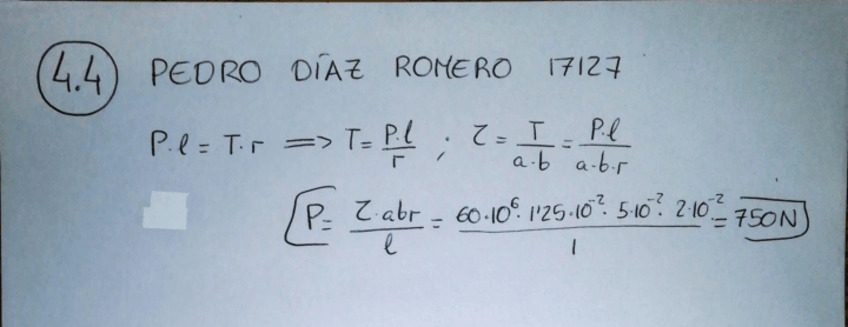 4.4 PEDRO DÍAZ ROMERO 17127
P·l = T·r => T = P·l/r ; τ = T/(a·b) = P·l/(a·b·r)
P = τ·abr/l = 60·10⁶·1'25·10⁻²·5·10⁻²·2·10⁻²/1 = 750N